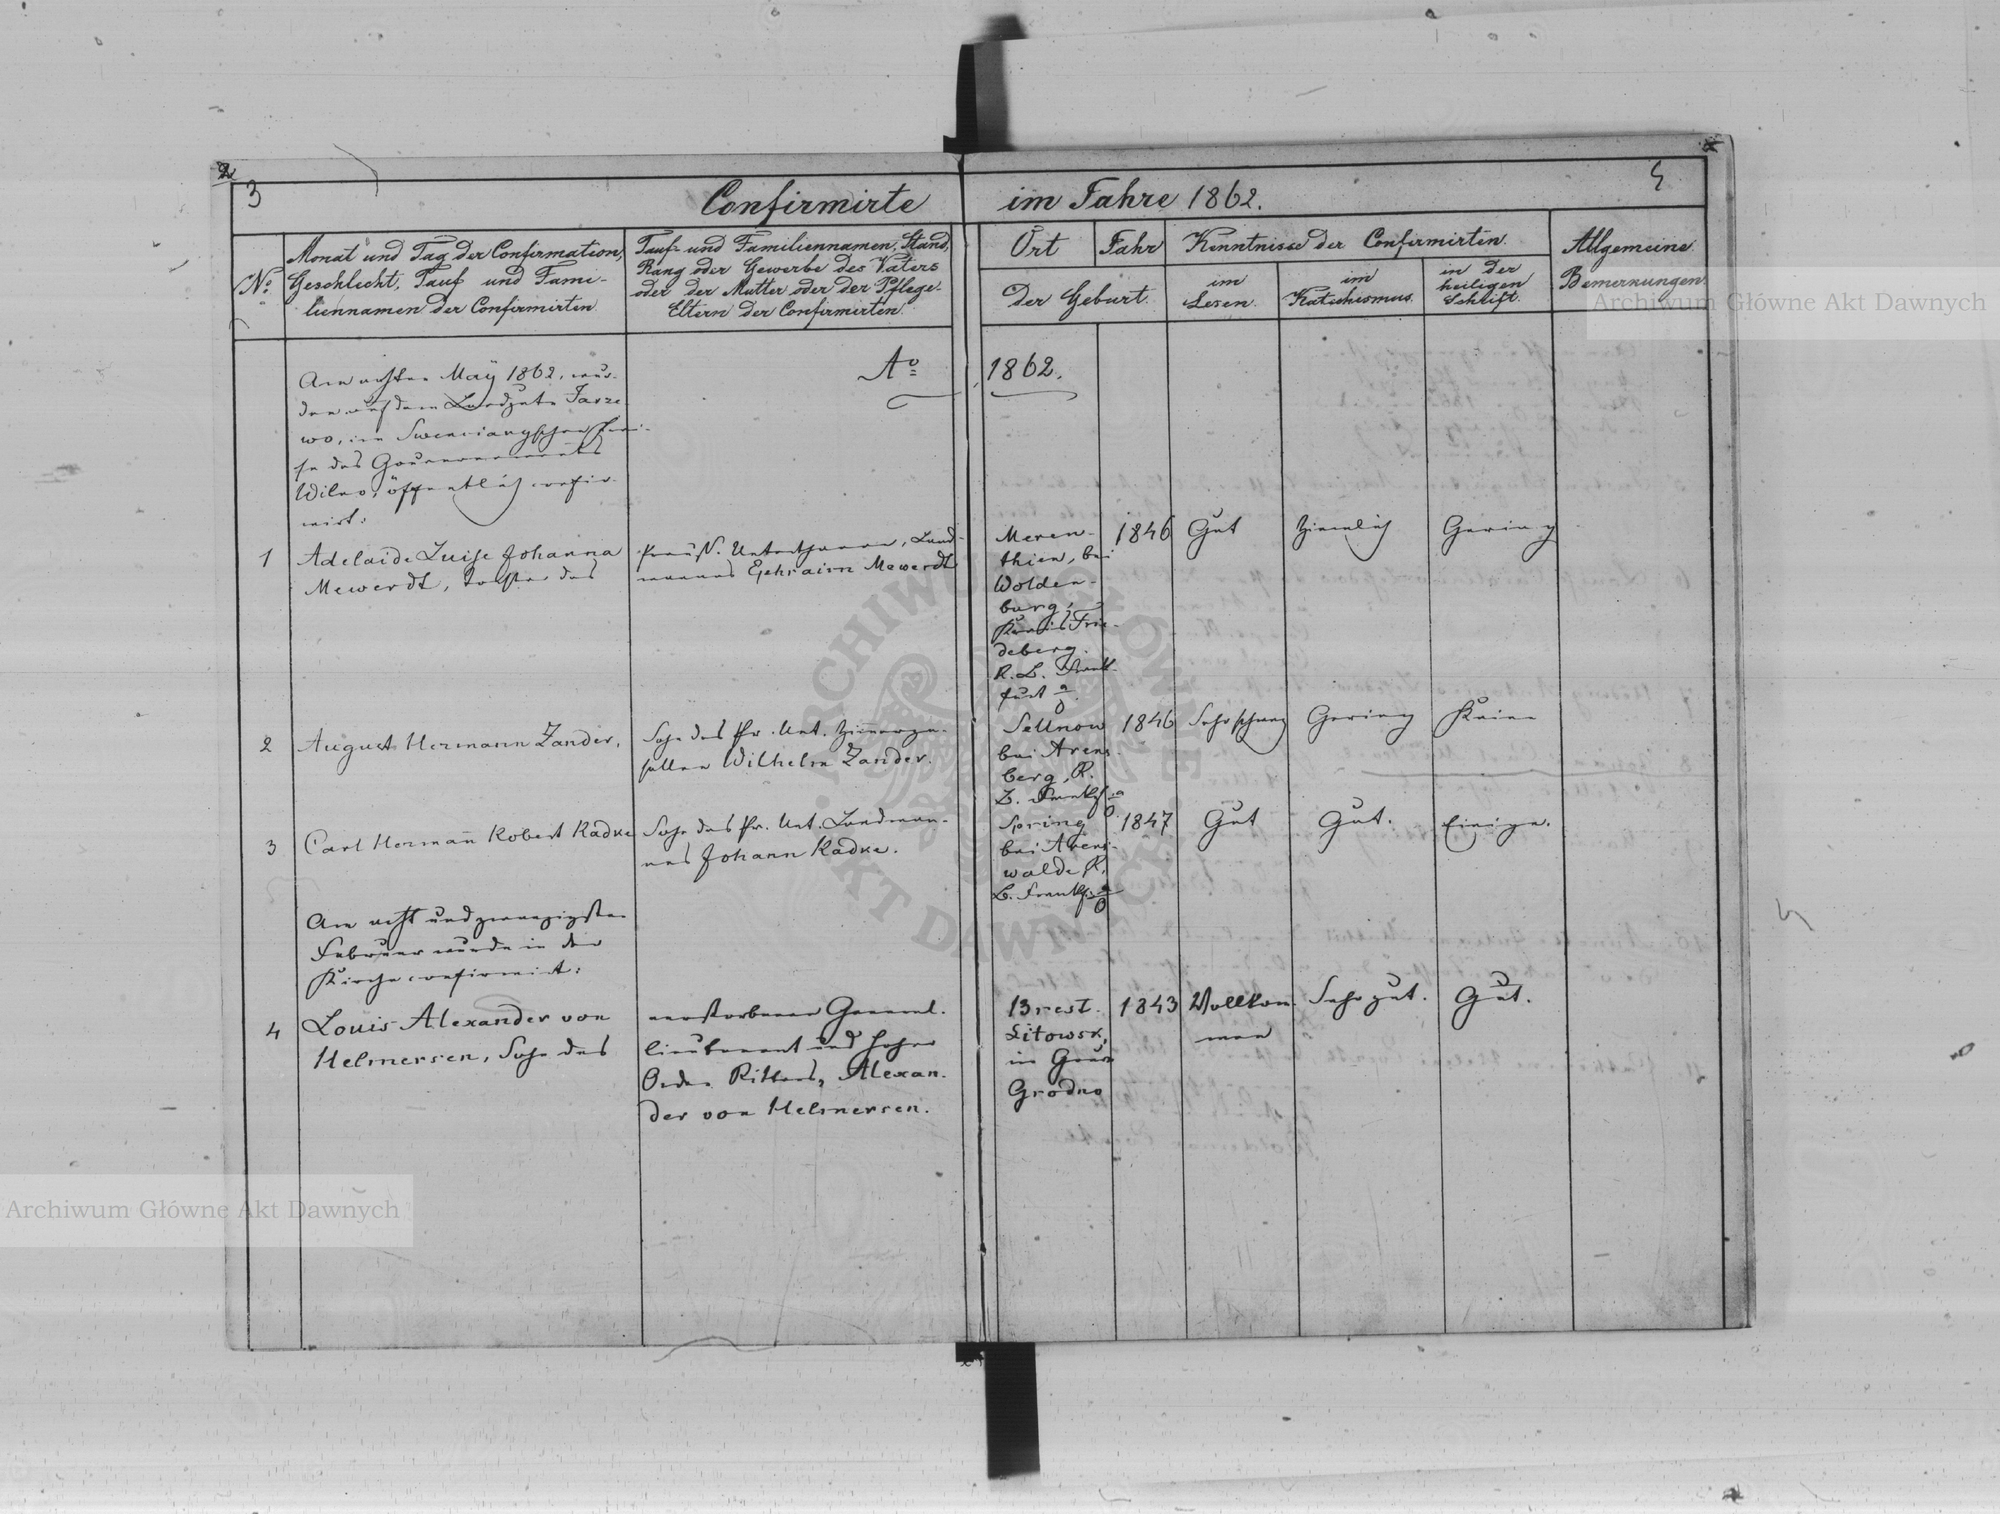 3
5
Confirmirte im Jahre 1862.
No
Monat und Tag der Confirmation,
Geschlecht, Tauf und Fami-
liennamen der Confirmirten
Tauf- und Familiennamen, Stand,
Rang oder Gewerbe des Vaters
oder der Mutter oder der Pflege-
Eltern der Confirmirten
Ort
Jahr
der Geburt.
Kenntnisse der Confirmirten.
im
Lesen.
im
Katechismus.
in der
heiligen
Schrift.
Allgemeine
Bemerkungen.
Ao 1862.
Am achten May 1862, wur-
den auf dem Landgute
wo, im Swenciangschen Krei-
se des Gouvernements
Wilno, öffentlich confir-
mirt:
1
Adelaide Luise Johanna
Mewerdt, Tochter des
Preuß. Unterthanen, Land-
mannes Ephraim Mewerdt
Meren-
thien, bei
Wolden-
burg,
Kreis Frie-
deberg.
R. B. Frank-
furt a/O.
1846
Gut
Ziemlich
Gering
2
August Hermann Zander,
Sohn des Pr. Unt. Zimmerge-
sellen Wilhelm Zander.
Sellnow
bei Arens
berg, R.
B. Frankf. a/O
1846
Sehr schwach
Gering
Keine
3
Carl Hermann Robert Radke
Sohn des Pr. Unt. Landman-
nes Johann Radke.
Spring
bei Arens-
walde R.
B. Frankf. a/O
1847
Gut
Gut.
Einige.
Am acht und zwanzigsten
Februar wurde in der
Kirche confirmirt:
4
Louis Alexander von
Helmersen, Sohn des
verstorbenen General-
lieutenant und hoher
Orden Ritters, Alexan-
der von Helmersen.
Brest-
Litowsk,
im Gouv
Grodno
1843
Vollkom-
men
Sehr gut.
Gut.
Archiwum Główne Akt Dawnych
Archiwum Główne Akt Dawnych